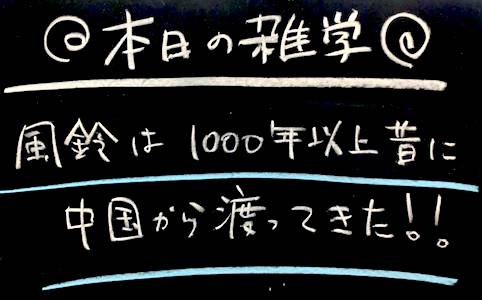 @本日の雑学@
風鈴は1000年以上昔に
中国から渡ってきた!!